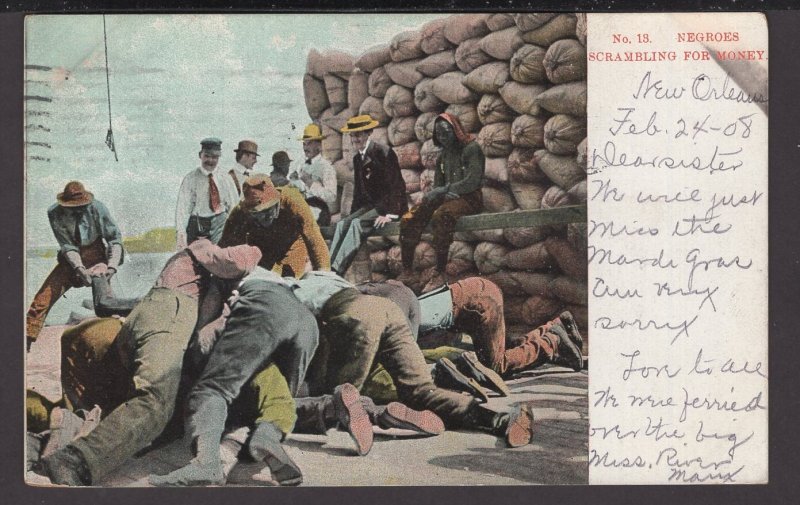 No. 13. NEGROES
SCRAMBLING FOR MONEY.
New Orleans
Feb. 24-08
Dear sister
We will just
Miss the
Mardi Gras
am very
sorry
Love to all
We were ferried
over the big
Miss. River